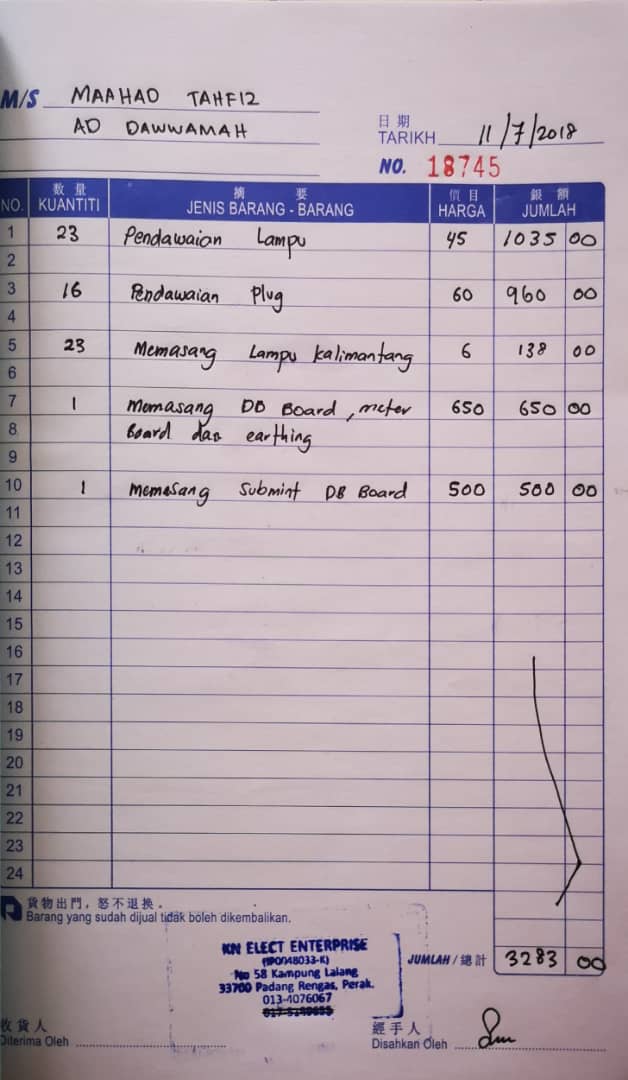 M/S MAAHAD TAHFIZ
AD DAWWAMAH
日期
TARIKH 11/7/2018
NO. 18745
NO. 数量 KUANTITI 摘要 JENIS BARANG - BARANG 價目 HARGA 銀額 JUMLAH
1 23 Pendawaian Lampu 45 1035 00
2
3 16 Pendawaian Plug 60 960 00
4
5 23 Memasang Lampu Kalimantang 6 138 00
6
7 1 Memasang DB Board, meter 650 650 00
8 Board dan earthing
9
10 1 Memasang Submint DB Board 500 500 00
11
12
13
14
15
16
17
18
19
20
21
22
23
24
貨物出門，怒不退换．
Barang yang sudah dijual tidak boleh dikembalikan.
KN ELECT ENTERPRISE
No 58 Kampung Lalang
33700 Padang Rengas, Perak.
013-4076067
JUMLAH / 總計 3283 00
收貨人
Diterima Oleh
經手人
Disahkan Oleh